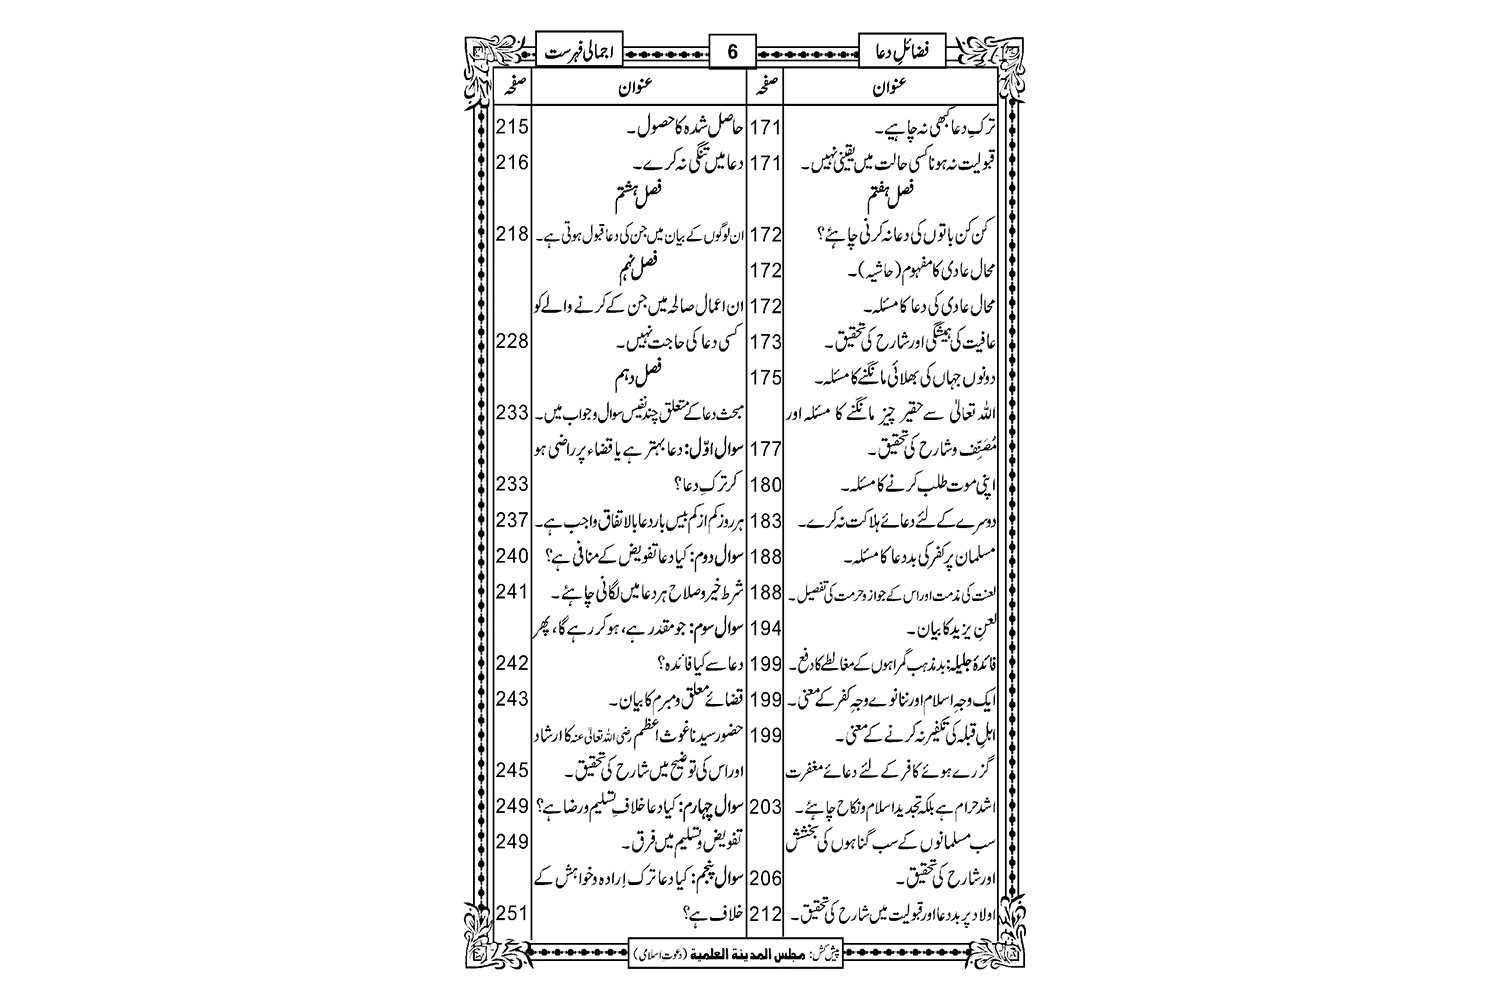 فضائلِ دعا 6 اجمالی فہرست
عنوان صفحہ
ترکِ دعا کبھی نہ چاہیے۔ 171
قبولیت نہ ہونا کسی حالت میں یقینی نہیں۔ 171
فصل ہفتم
کن کن باتوں کی دعا نہ کرنی چاہئے؟ 172
محال عادی کا مفہوم (حاشیہ)۔ 172
محال عادی کی دعا کا مسئلہ۔ 172
عافیت کی ہمیشگی اور شارح کی تحقیق۔ 173
دونوں جہاں کی بھلائی مانگنے کا مسئلہ۔ 175
اللہ تعالیٰ سے حقیر چیز مانگنے کا مسئلہ اور
مُصَنِّف و شارح کی تحقیق۔ 177
اپنی موت طلب کرنے کا مسئلہ۔ 180
دوسرے کے لئے دعائے ہلاکت نہ کرے۔ 183
مسلمان پر کفر کی بددعا کا مسئلہ۔ 188
لعنت کی مذمت اور اس کے جواز و حرمت کی تفصیل۔ 188
لعنِ یزید کا بیان۔ 194
فائدۂ جلیلہ: بدمذہب گمراہوں کے مغالطے کا دفع۔ 199
ایک وجہِ اسلام اور ننانوے وجہِ کفر کے معنی۔ 199
اہلِ قبلہ کی تکفیر نہ کرنے کے معنی۔ 199
گزرے ہوئے کافر کے لئے دعائے مغفرت
اشد حرام ہے بلکہ تجدید اسلام و نکاح چاہئے۔ 203
سب مسلمانوں کے سب گناہوں کی بخشش
اور شارح کی تحقیق۔ 206
اولاد پر بددعا اور قبولیت میں شارح کی تحقیق۔ 212
عنوان صفحہ
حاصل شدہ کا حصول۔ 215
دعا میں تنگی نہ کرے۔ 216
فصل ہشتم
ان لوگوں کے بیان میں جن کی دعا قبول ہوتی ہے۔ 218
فصل نہم
ان اعمال صالحہ میں جن کے کرنے والے کو
کسی دعا کی حاجت نہیں۔ 228
فصل دہم
مبحث دعا کے متعلق چند نفیس سوال و جواب میں۔ 233
سوال اوّل: دعا بہتر ہے یا قضاء پر راضی ہو
کر ترکِ دعا؟ 233
ہر روز کم از کم بیس بار دعا بالاتفاق واجب ہے۔ 237
سوال دوم: کیا دعا تفویض کے منافی ہے؟ 240
شرط خیر و صلاح ہر دعا میں لگانی چاہئے۔ 241
سوال سوم: جو مقدر ہے، ہو کر رہے گا، پھر
دعا سے کیا فائدہ؟ 242
قضائے معلق و مبرم کا بیان۔ 243
حضور سیدنا غوث اعظم رضی اللہ تعالیٰ عنہ کا ارشاد
اور اس کی توضیح میں شارح کی تحقیق۔ 245
سوال چہارم: کیا دعا خلافِ تسلیم و رضا ہے؟ 249
تفویض و تسلیم میں فرق۔ 249
سوال پنجم: کیا دعا ترک اِرادہ و خواہش کے
خلاف ہے؟ 251
پیش کش: مجلس المدینة العلمیة (دعوت اسلامی)